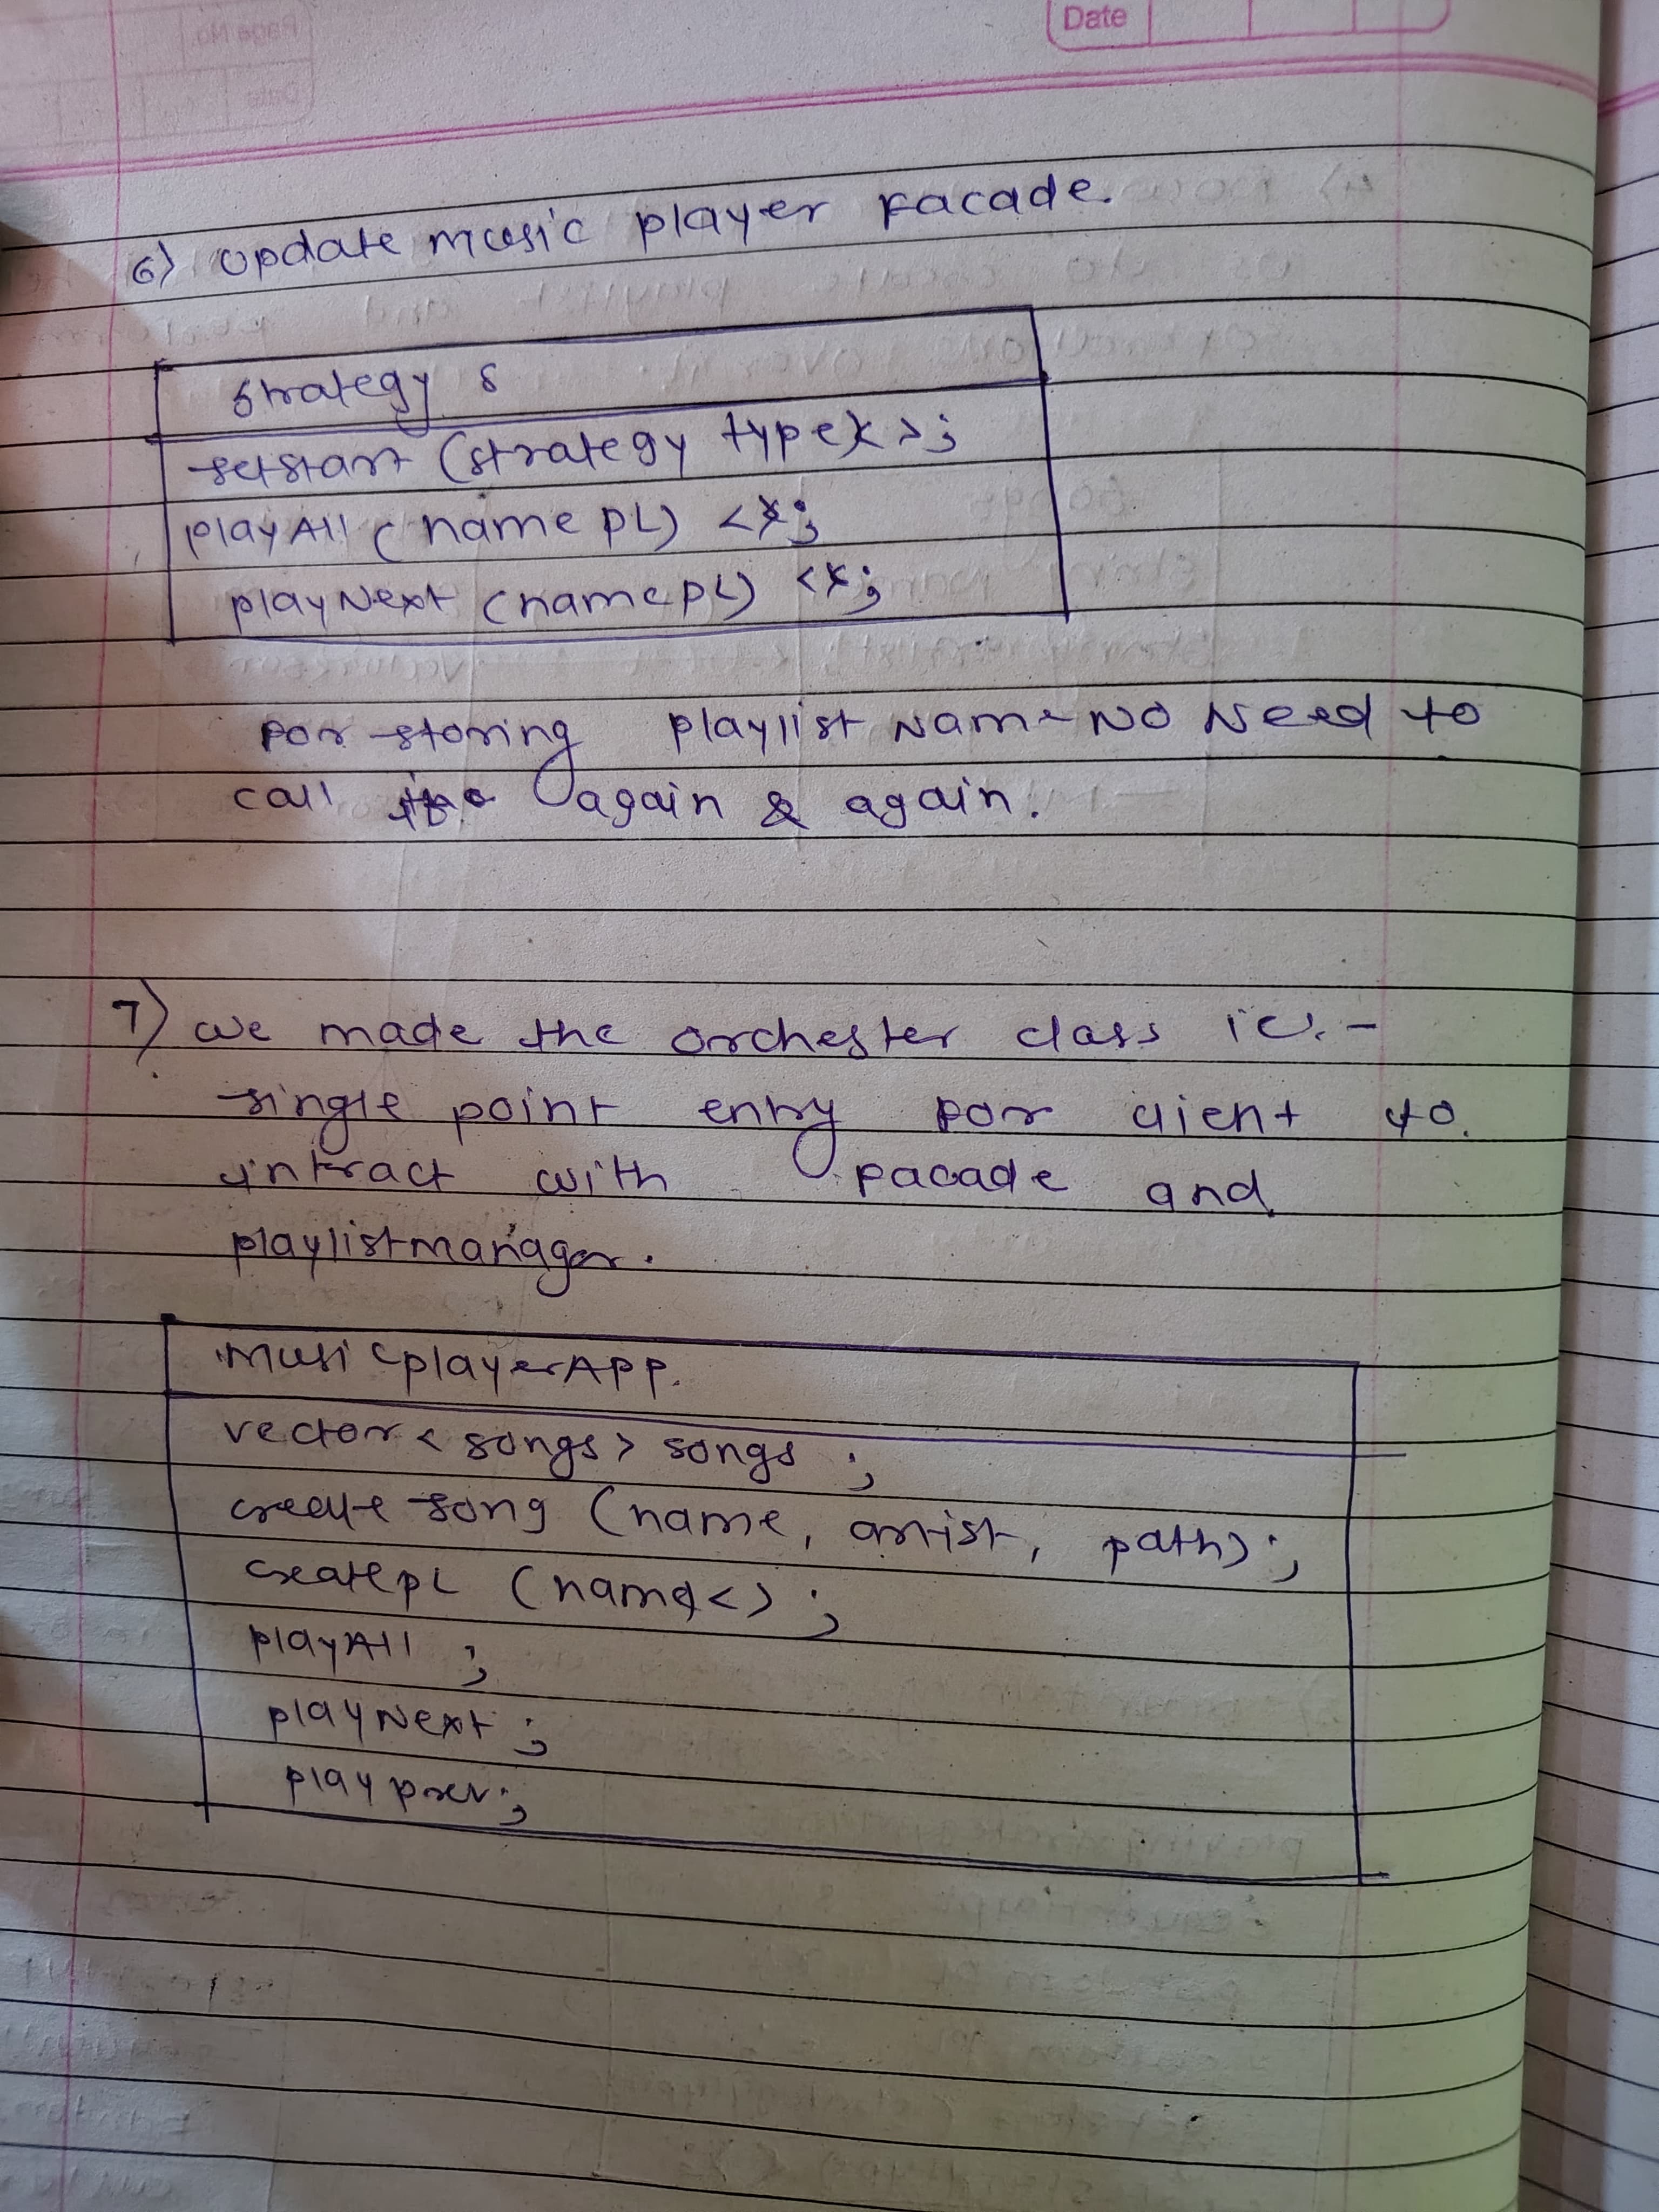 Date
6) update music player facade.
strategy s
setstart (strategy type){ };
playAll (name PL) { };
playNext (name PL) { };
For storing playlist Name NO Need to
call again & again.
7) we made the orchester class ie. -
single point entry for client to.
intract with facade and
playlistmanager.
musicplayerApp.
vector < songs > songs ;
create song (name, artist, path) ;
createPL (name<) ;
playAll ;
playNext ;
playprev ;